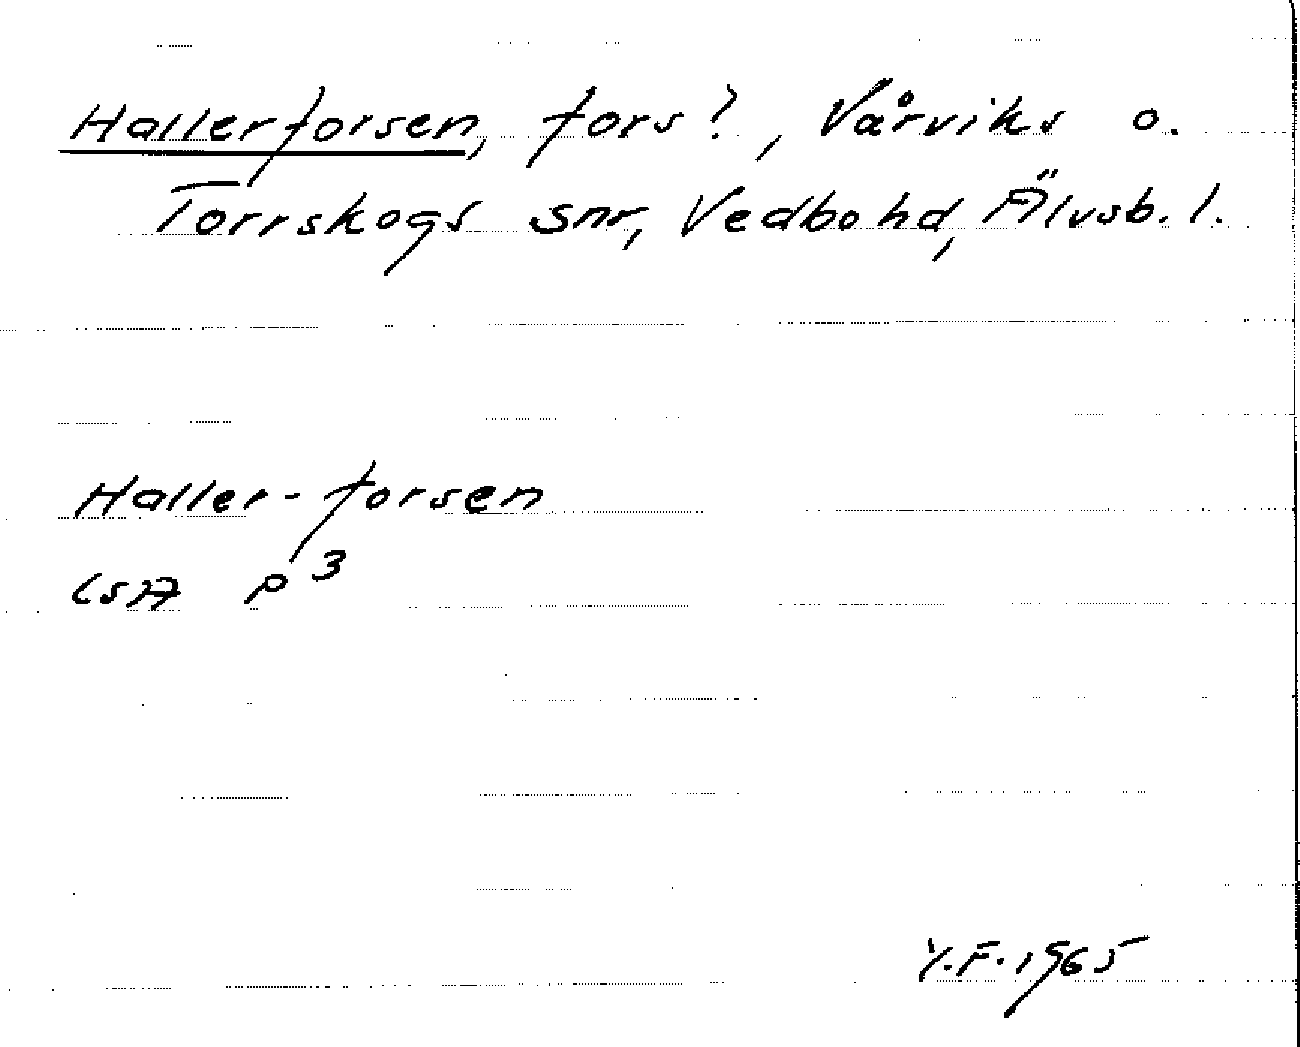 Hallerforsen, fors?, Vårviks o.
Torrskogs snr, Vedbo hd, Älvsb. l.
Haller-forsen
LSA P³
Y.F. 1965